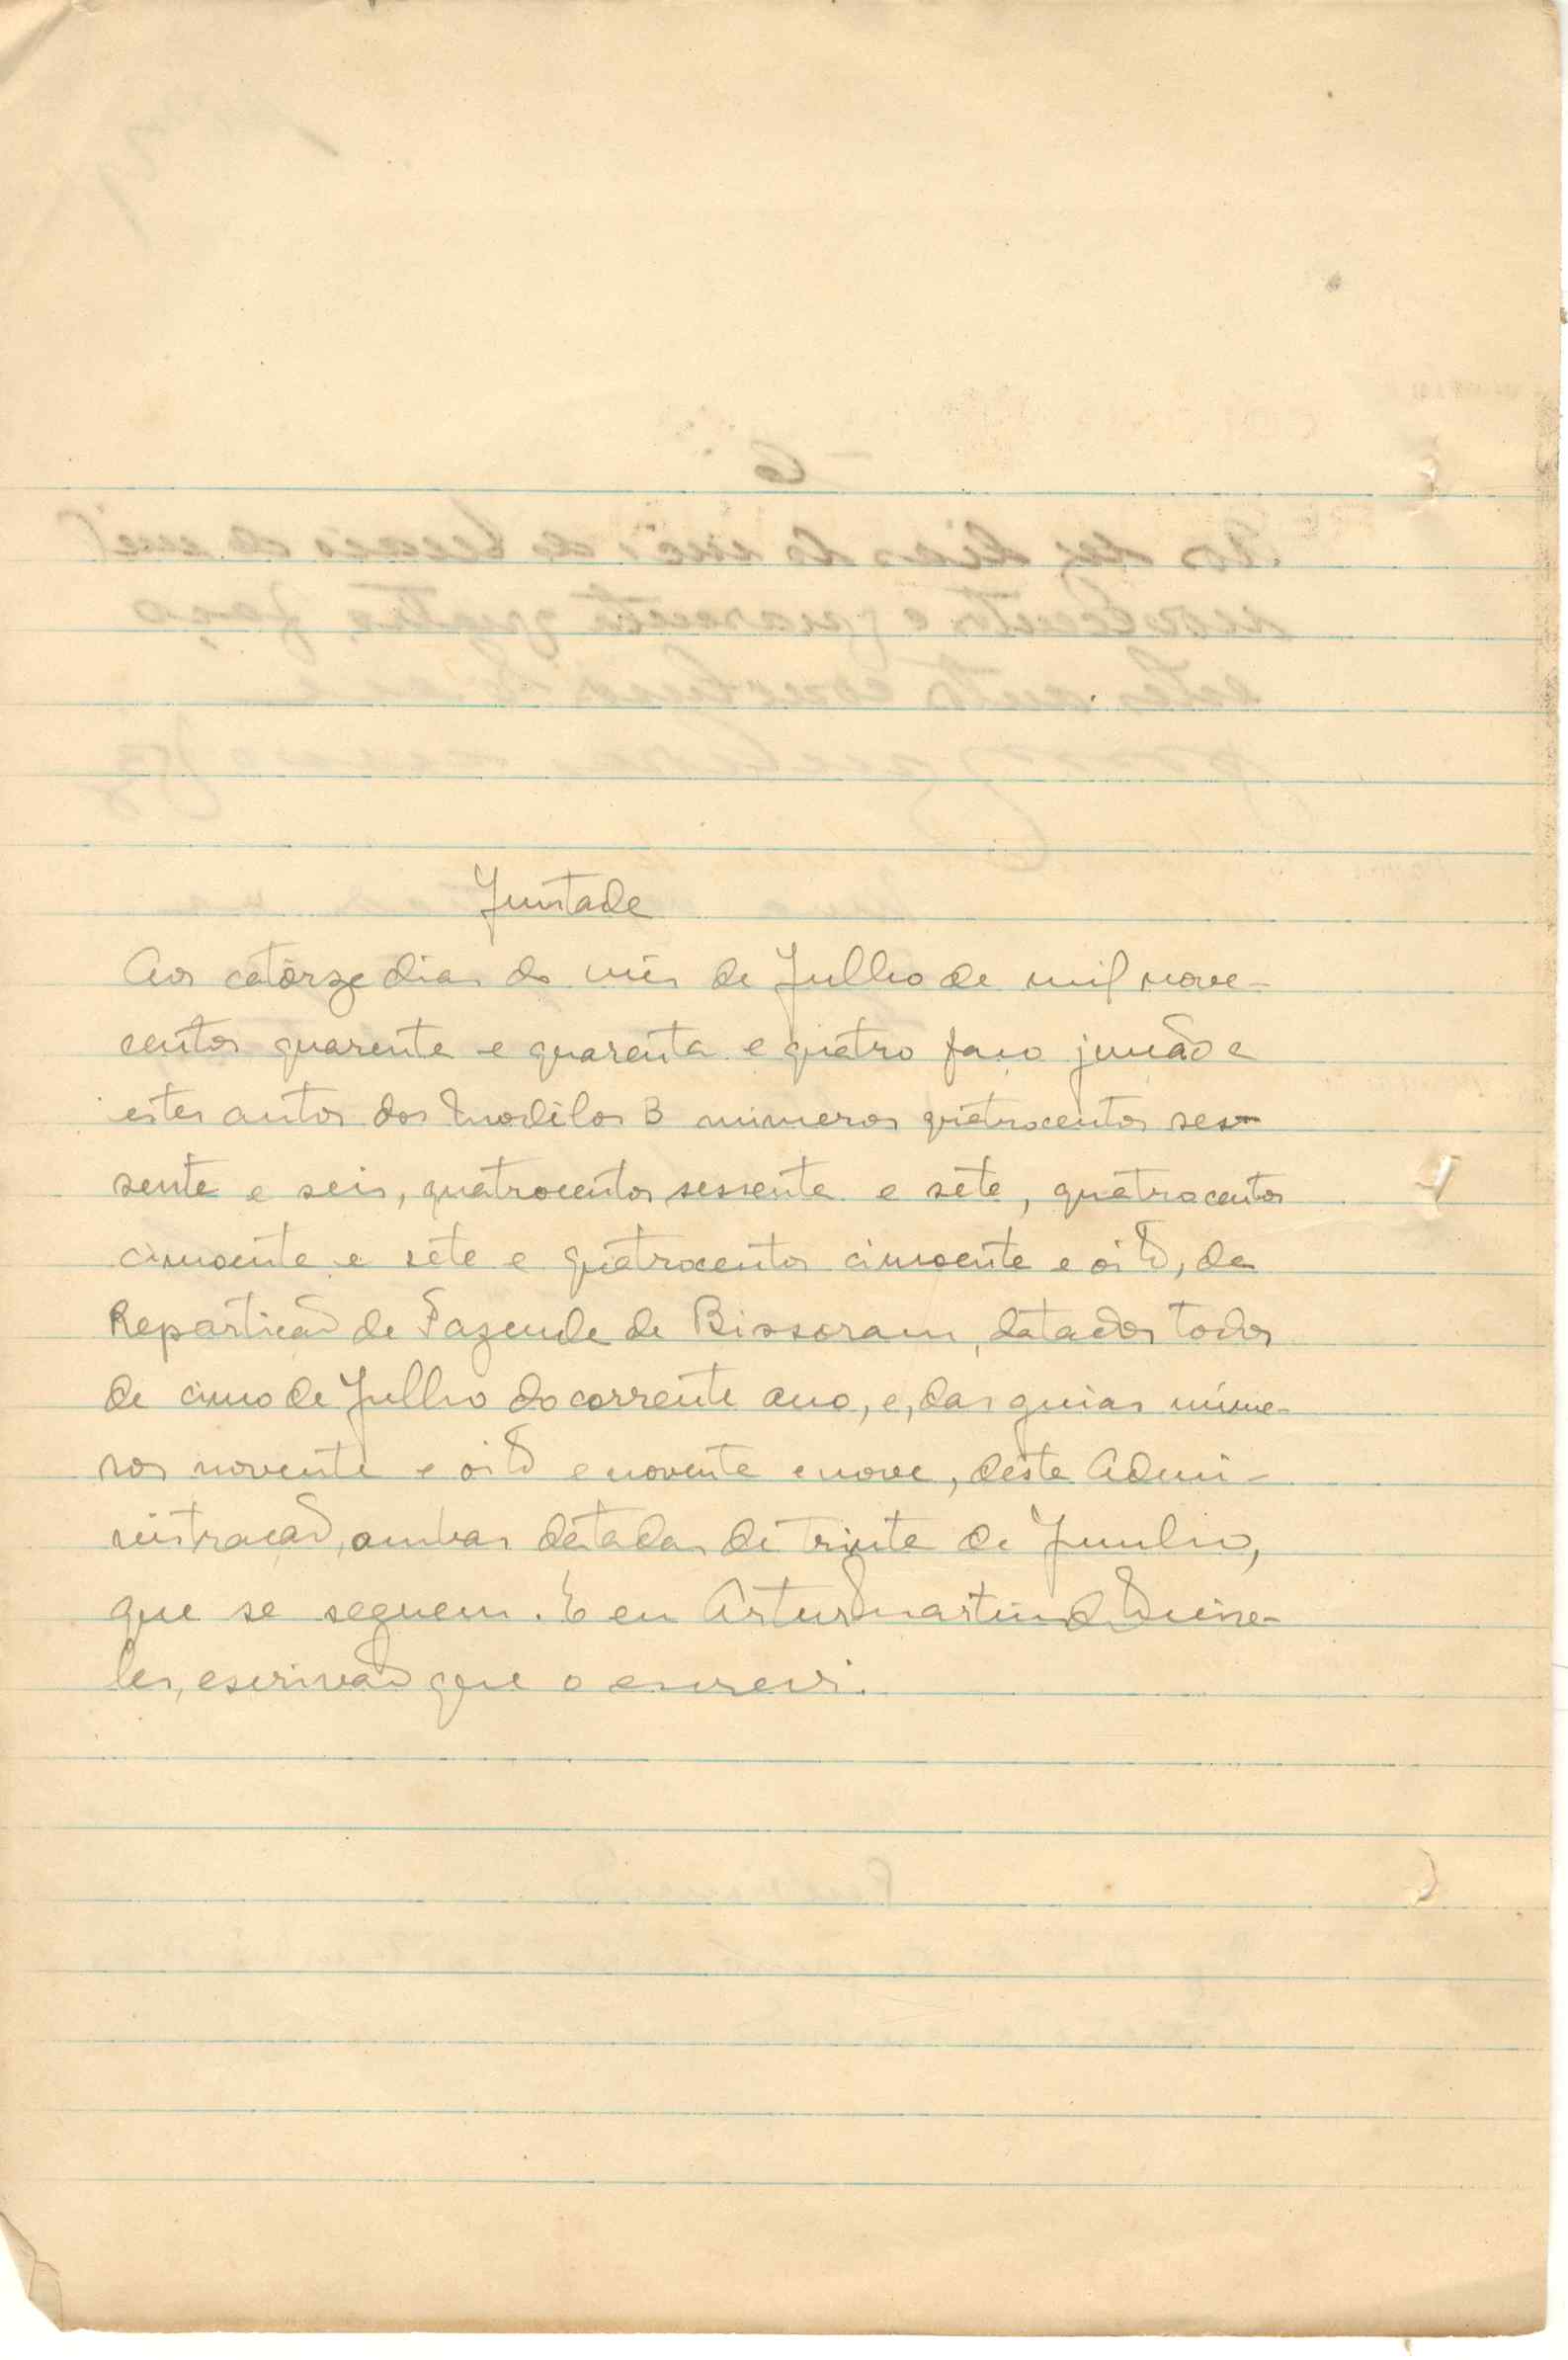 Juntada
Aos catorze dias do mês de Julho de mil nove-
centos quarenta e quarenta e quatro faço junção a
estes autos dos Modêlos B números quatrocentos ses-
senta e seis, quatrocentos sessenta e sete, quatrocentos
cincoenta e sete e quatrocentos cincoenta e oito, da
Repartição de Fazenda de Bissoram, datados todos
de cinco de Julho do corrente ano, e, das guias núme-
ros noventa e oito e noventa e nove, desta Admi-
nistração, ambas datadas de trinta de Junho,
que se seguem. E eu Artur Martins de
les, escrivão que o escrevi.